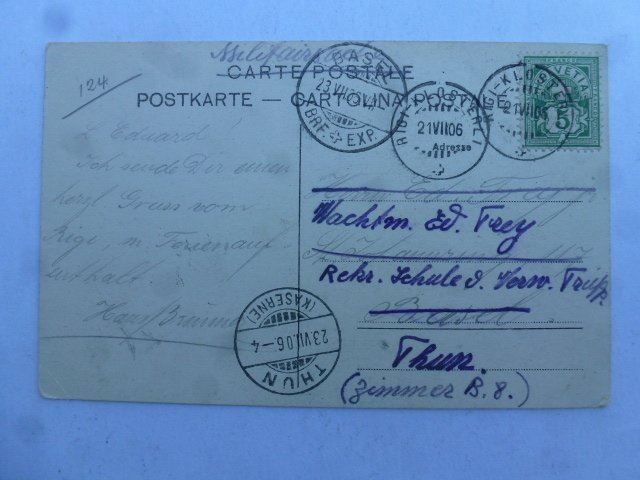 124
Militär
CARTE POSTALE
POSTKARTE — CARTOLINA POSTALE
BASEL
23.VII.06
BRF. EXP.
RIGI-KLÖSTERLI
21 VII 06
RIGI-KLÖSTERLI
21 VII 06
FRANCO
HELVETIA
5
Adresse
L. Eduard!
Ich sende Dir einen
herzl. Gruss vom
Rigi, m. Ferienauf-
enthalt.
Hans
Wachtm. Ed. Frey
Rekr. Schule d. Verw. Trupp.
Basel
Thun.
(Zimmer B. 8.)
THUN
23.VII.06.-4
(KASERNE)